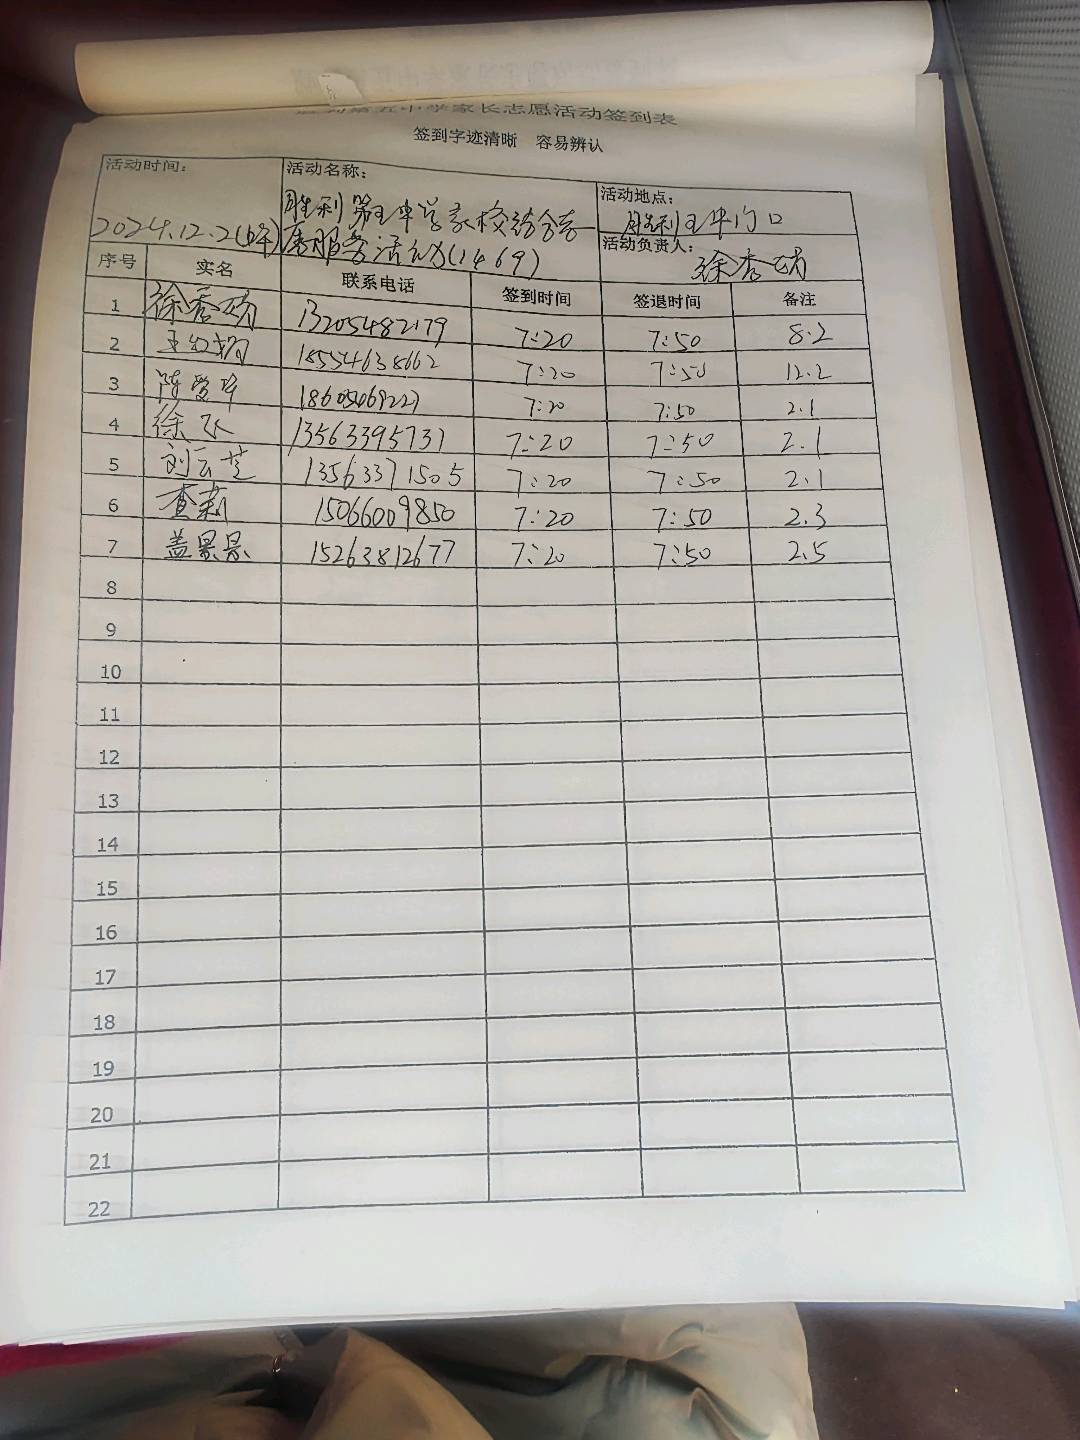 第五中学家长志愿活动签到表
签到字迹清晰 容易辨认
活动时间： 活动名称： 活动地点：
2024.12.2 胜利第五中学家校结合志愿服务活动(1469) 胜利五中门口
活动负责人：
徐秀
序号 实名 联系电话 签到时间 签退时间 备注
1 徐秀 13205482179 7:20 7:50 8.2
2 18554638662 7:20 7:50 12.2
3 陈爱华 7:20 7:50 2.1
4 徐飞 13563395731 7:20 7:50 2.1
5 刘云芝 13563371505 7:20 7:50 2.1
6 查莉 15066009850 7:20 7:50 2.3
7 盖景景 15263812677 7:20 7:50 2.5
8
9
10
11
12
13
14
15
16
17
18
19
20
21
22